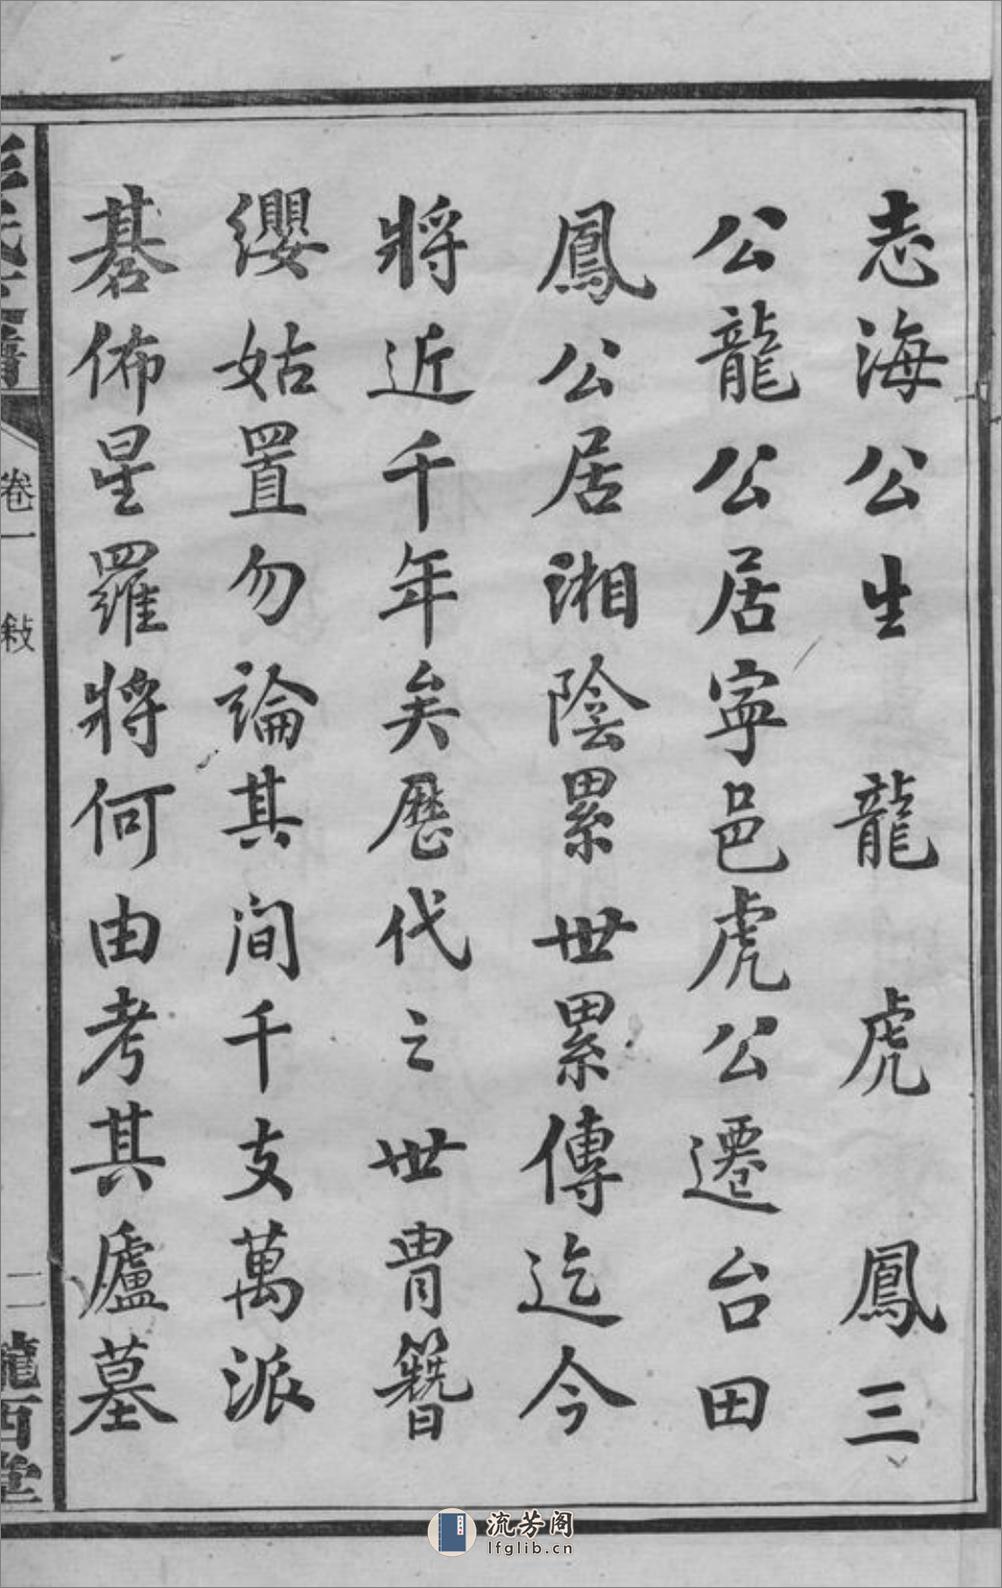 志海公生龍虎鳳三
公龍公居寧邑虎公遷台田
鳳公居湘陰累世累傳迄今
將近千年矣歷代之世胄簪
纓姑置勿論其間千支萬派
碁佈星羅將何由考其廬墓
卷一 敍
二
隴西堂
流芳阁
lfglib.cn